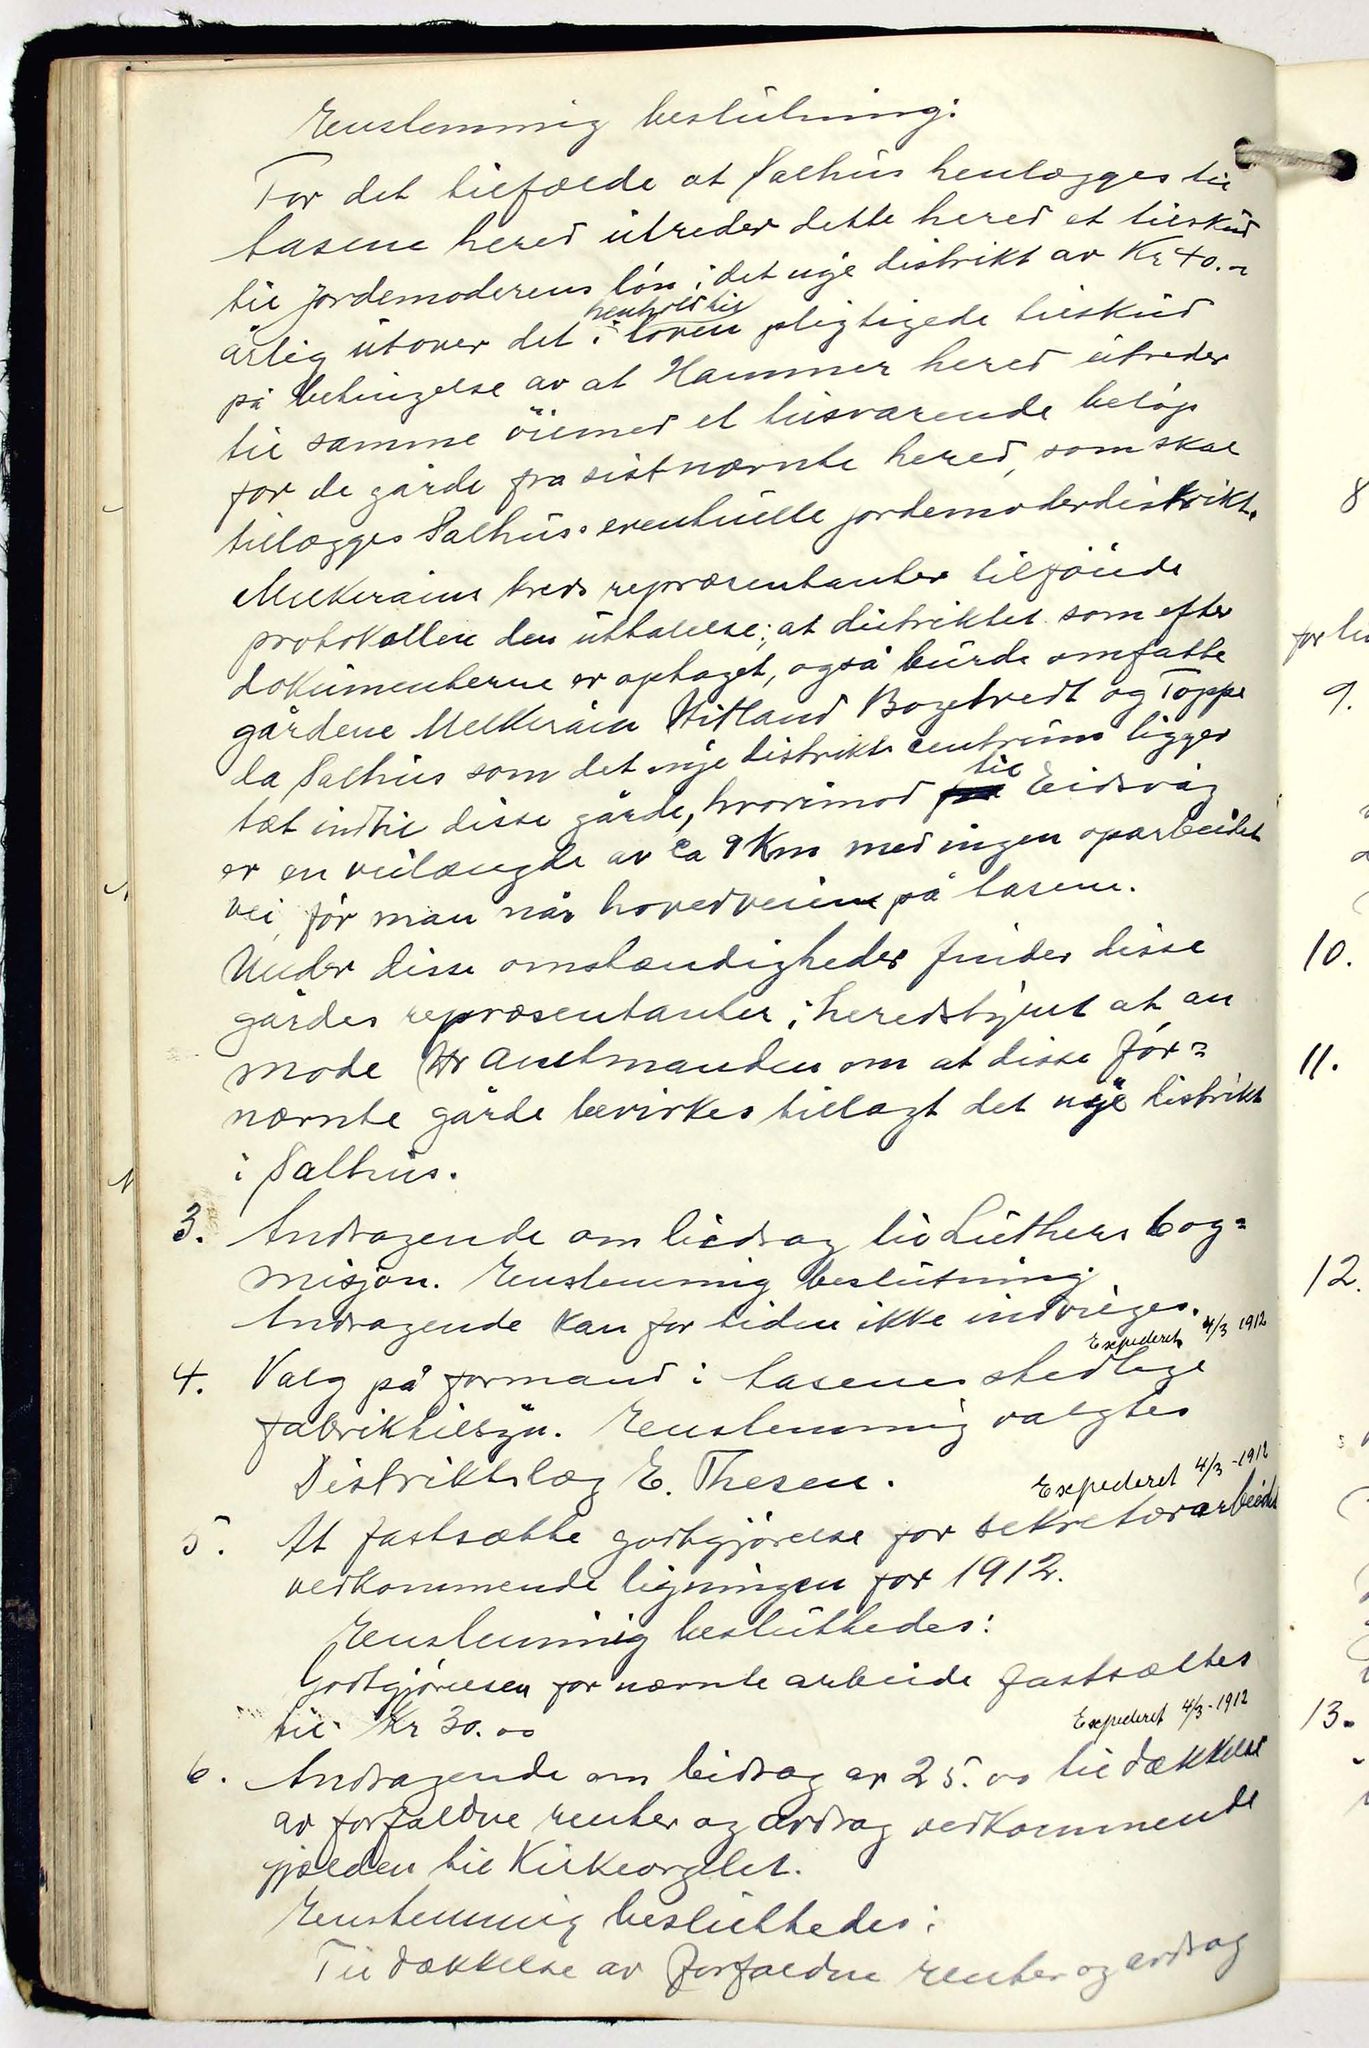 Enstemmig beslutning:
For det tilfælde at Salhus henlægges til
Aasene hered utreder dette hered et tilskud
til jordemoderens løn i det nye distrikt av Kr 40.-
årlig utover det i henhold til loven pligtigede tilskud
på betingelse av at Hammer hered utreder
til samme öiemed et tilsvarende beløp
for de gårde fra sistnævnte hered, som skal
tillægges Salhus eventuelle jordemoderdistrikt.
Melkeråens kreds repræsentanter tilföiede
protokollen den uttalelse; at distriktet som efter
dokumenterne er optaget, også burde omfatte
gårdene Melkeråen Hitland Bogetvedt og Toppe
da Salhus som det nye distrikts centrum ligger
tæt indtil disse gårde, hvorimod til Eidsvåg
er en veilængde av ca 9 Km med ingen oparbeidet
vei, før man når hovedveien på Aasene.
Under disse omstændigheder finder disse
gårdes repræsentanter i heredstyret at an
mode Hr Amtmanden om at disse før=
nævnte gårde bevirkes tillagt det nye distrikt
i Salhus.
3. Andragende om bidrag til Luthers bog=
misjon. Enstemmig beslutning
Andragende kan for tiden ikke indvilges.
Expederet 4/3 1912
4. Valg på formand i Aasenes stedlige
fabriktilsyn. Enstemmig valgtes
Distriktslæg E. Thesen.
Expederet 4/3 - 1912
5. At fastsætte godtgjørelse for sekretærarbeidet
vedkommende ligningen for 1912.
Enstemmig besluttedes:
Godtgjørelsen for nævnte arbeide fastsættes
til Kr 30.00
Expederet 4/3 - 1912
6. Andragende om bidrag av 25.00 til dækkelse
av forfaldne renter og avdrag vedkommende
gjælden til Kirkeorglet.
Enstemmig besluttedes:
Til dækkelse av forfaldne renter og avdrag
8
9.
10.
11.
12.
13.